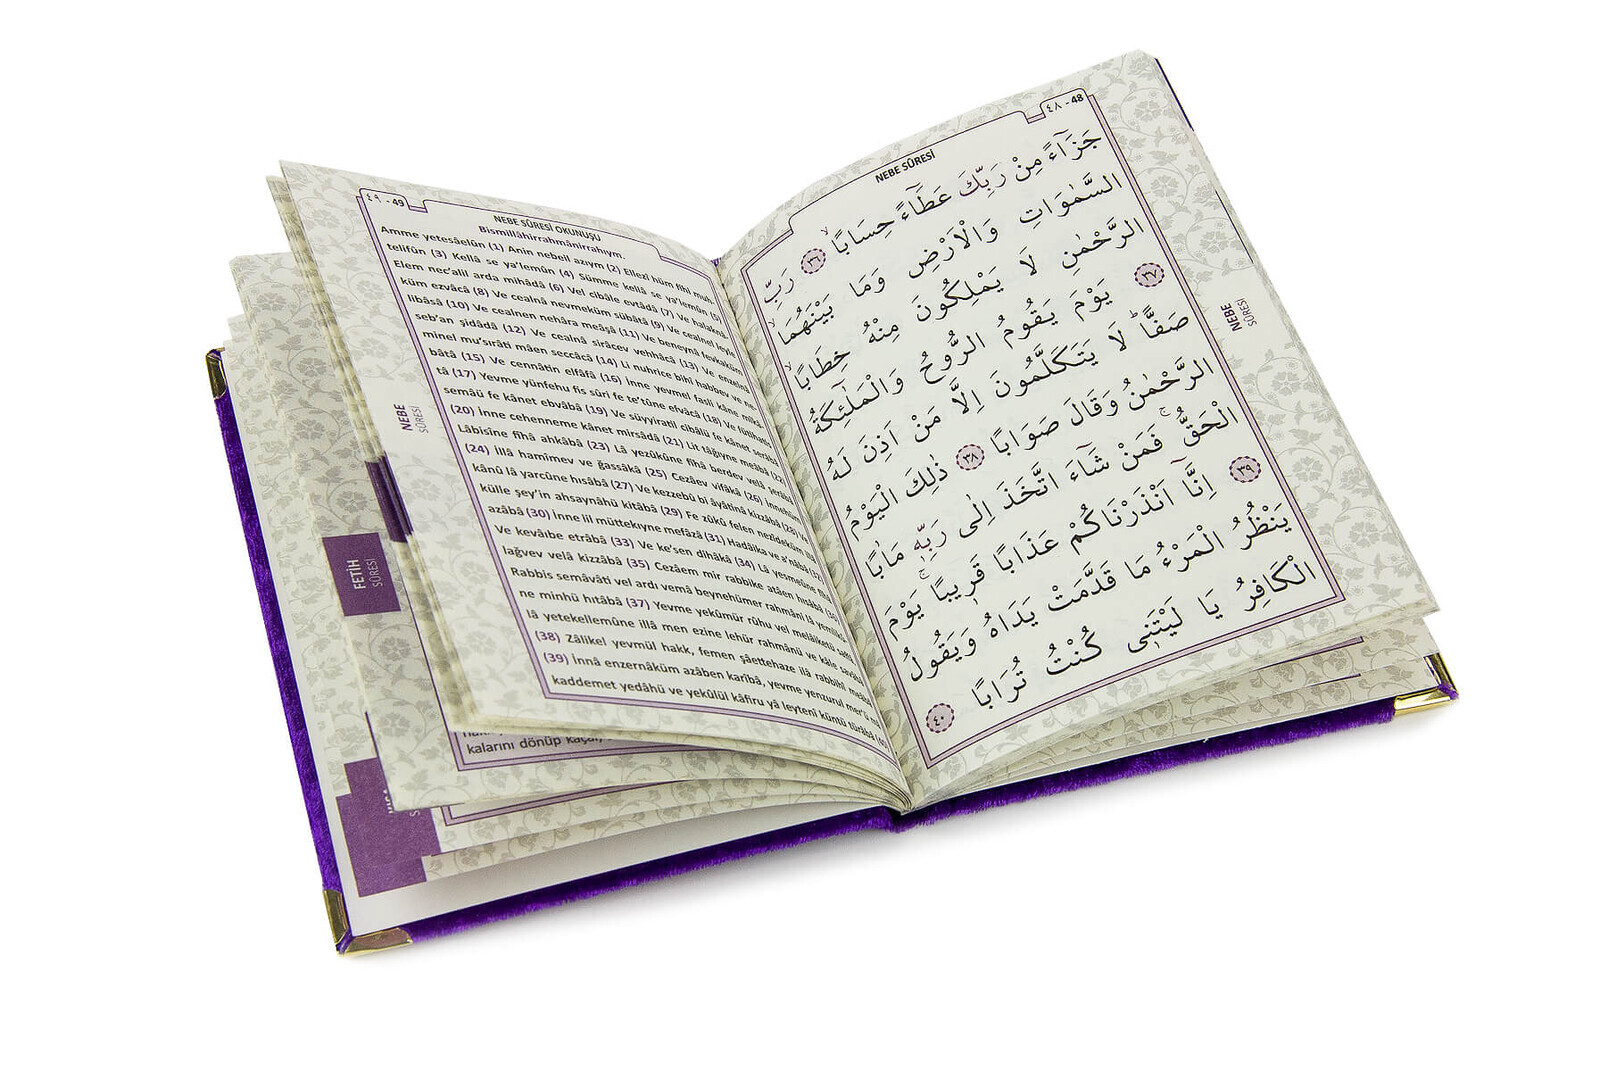 ٤٨ - 48
NEBE SÛRESİ
جَزَٓاءً مِنْ رَبِّكَ عَطَٓاءً حِسَابًاۙ ﴿٣٦﴾ رَبِّ
السَّمٰوَاتِ وَالْاَرْضِ وَمَا بَيْنَهُمَا
الرَّحْمٰنِ لَا يَمْلِكُونَ مِنْهُ خِطَابًاۚ
﴿٣٧﴾ يَوْمَ يَقُومُ الرُّوحُ وَالْمَلٰٓئِكَةُ
صَفًّاۜ لَا يَتَكَلَّمُونَ اِلَّا مَنْ اَذِنَ لَهُ
الرَّحْمٰنُ وَقَالَ صَوَابًا ﴿٣٨﴾ ذٰلِكَ الْيَوْمُ
الْحَقُّۚ فَمَنْ شَٓاءَ اتَّخَذَ اِلٰى رَبِّه۪ مَاٰبًا
﴿٣٩﴾ اِنَّٓا اَنْذَرْنَاكُمْ عَذَابًا قَر۪يبًاۚ يَوْمَ
يَنْظُرُ الْمَرْءُ مَا قَدَّمَتْ يَدَاهُ وَيَقُولُ
الْكَافِرُ يَا لَيْتَن۪ي كُنْتُ تُرَابًا ﴿٤٠﴾
NEBE
SÛRESİ
٤٩ - 49
NEBE SÛRESİ OKUNUŞU
Bismillâhirrahmânirrahıym.
Amme yetesâelûn (1) Anin nebeil azıym (2) Ellezî hüm fîhi muh-
telifûn (3) Kellâ se ya'lemûn (4) Sümme kellâ se ya'lemûn (5)
Elem nec'alil arda mihâdâ (6) Vel cibâle evtâdâ (7) Ve halaknâ-
küm ezvâcâ (8) Ve cealnâ nevmeküm sübâtâ (9) Ve cealnel leyle
libâsâ (10) Ve cealnen nehâra meâşâ (11) Ve beneynâ fevkaküm
seb'an şidâdâ (12) Ve cealnâ sirâcev vehhâcâ (13) Ve enzelnâ
minel mu'sırâti mâen seccâcâ (14) Li nuhrice bihî habbev ve ne-
bâtâ (15) Ve cennâtin elfâfâ (16) İnne yevmel fasli kâne mîkâ-
tâ (17) Yevme yünfehu fis sûri fe te'tûne efvâcâ (18) Ve fütihatis
semâü fe kânet ebvâbâ (19) Ve süyyiratil cibâlü fe kânet serâbâ
(20) İnne cehenneme kânet mirsâdâ (21) Lit tâğıyne meâbâ (22)
Lâbisîne fîhâ ahkâbâ (23) Lâ yezûkûne fîhâ berdev velâ şerâbâ
(24) İllâ hamîmev ve ğassâkâ (25) Cezâev vifâkâ (26) İnnehüm
kânû lâ yarcûne hısâbâ (27) Ve kezzebû bi âyâtinâ kizzâbâ (28)
külle şey'in ahsaynâhü kitâbâ (29) Fe zûkû felen nezîdeküm
azâbâ (30) İnne lil müttekıyne mefâzâ (31) Hadâika ve a'nâbâ (32)
Ve kevâıbe etrâbâ (33) Ve ke'sen dihâkâ (34) Lâ yesmeûne fîhâ
lağvev velâ kizzâbâ (35) Cezâem mir rabbike atâen hısâbâ (36)
Rabbis semâvâti vel ardı vemâ beynehümer rahmâni lâ
ne minhü hıtâbâ (37) Yevme yekûmür rûhu vel melâiketü saffâ
lâ yetekellemûne illâ men ezine lehür rahmânü ve kâle savâbâ
(38) Zâlikel yevmül hakk, femen şâettehaze ilâ rabbihî meâbâ
(39) İnnâ enzernâküm azâben karîbâ, yevme yenzurul mer'ü mâ
kaddemet yedâhü ve yekûlül kâfiru yâ leytenî küntü türâbâ (40)
NEBE
SÛRESİ
FETİH
SÛRESİ
kalarını dönüp kaçar,